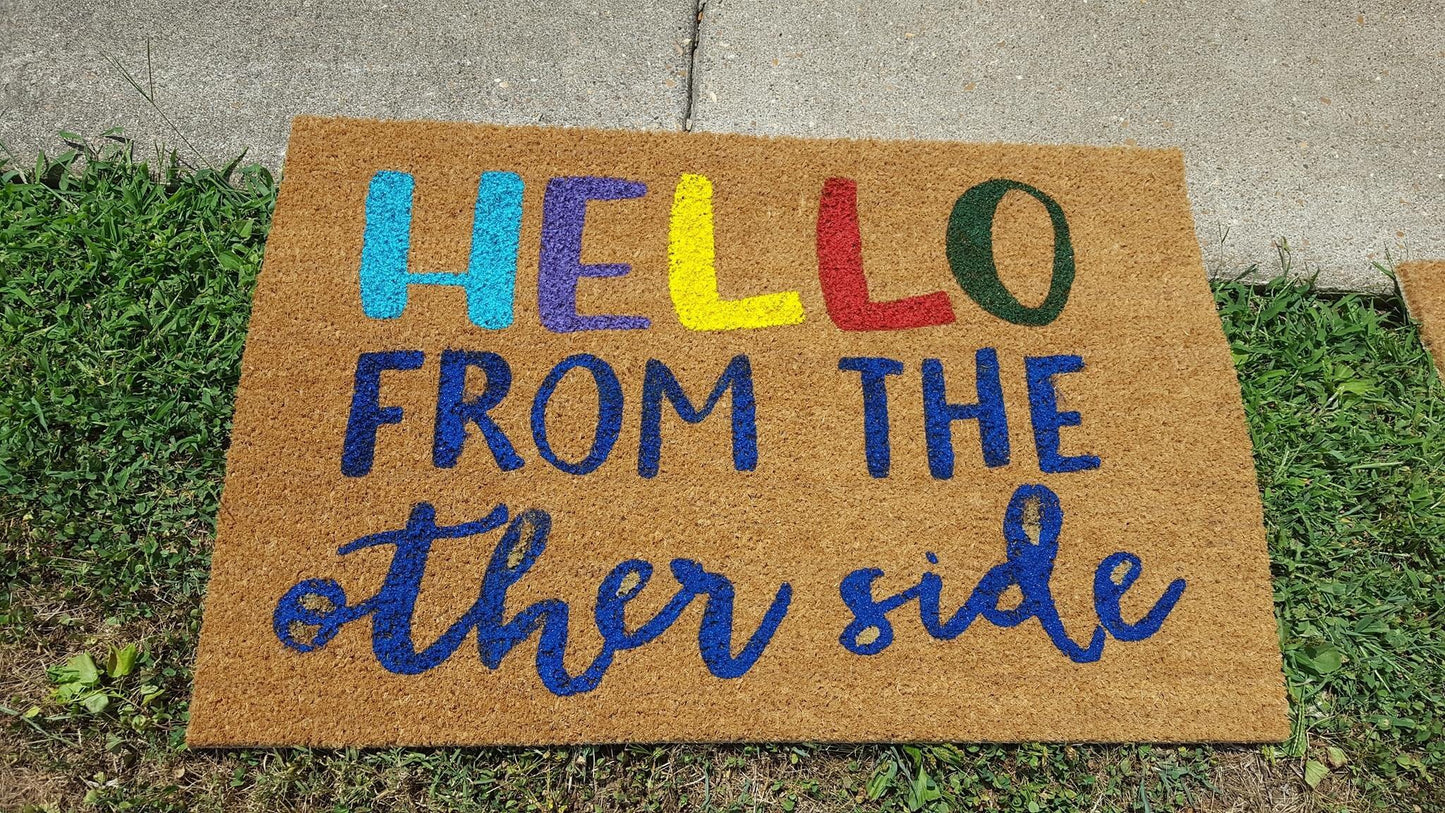 HELLO
FROM THE
other side